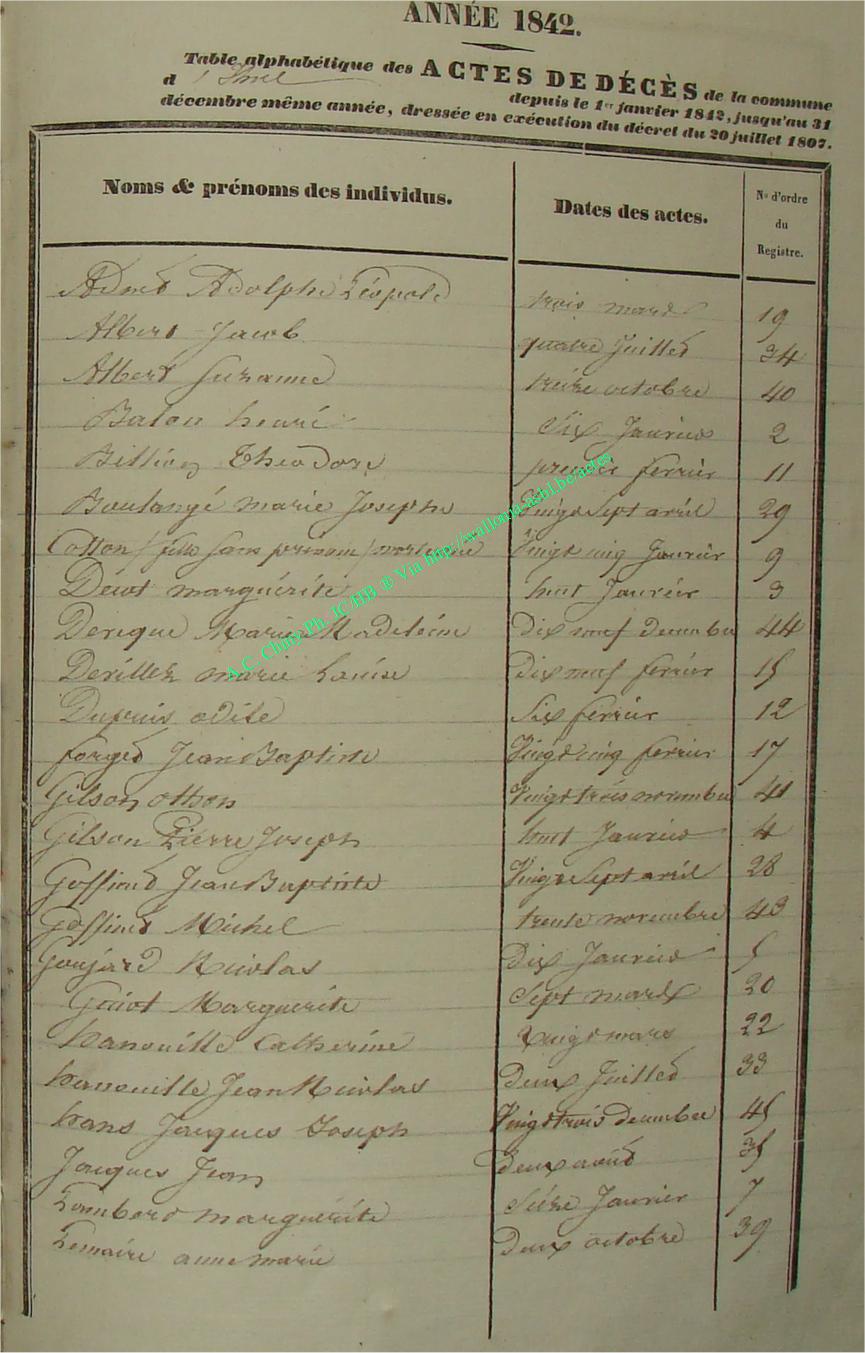 ANNÉE 1842.
Table alphabétique des ACTES DE DÉCÈS de la commune
d depuis le 1er janvier 1842, jusqu'au 31
décembre même année, dressée en exécution du décret du 20 juillet 1807.
Noms & prénoms des individus. Dates des actes. No d'ordre du Registre.
Adnet Adolphe Léopold trois mars 19
Albert Jacob quatre Juillet 34
Albert Suzanne treize octobre 40
Balon henri Six Janvier 2
Billiez Theodore premier fevrier 11
Boulangé marie Joseph Vingt Sept avril 29
Cotton / fille sans prénom / mort née Vingt cinq Janvier 9
Dewt marguérite huit Janvier 3
Dereque Marie Madeleine dix neuf decembre 44
Derillez marie Louise dix neuf fevrier 15
Dupuis odile Six fevrier 12
forget Jean Baptiste Vingt cinq fevrier 17
Gilson othon Vingt trois novembre 41
Gilson Pierre Joseph huit Janvier 4
Goffinet Jean Baptiste Vingt Sept avril 28
Goffinet Michel trente novembre 43
Goujard Nicolas Dix Janvier 5
Guiot Marguérite Sept mars 20
hanouille Catherine Vingt mars 22
hanouille Jean Nicolas Deux Juillet 33
hans Jacques Joseph Vingt trois decembre 45
Jacques Jean Deux août 35
Lombard marguérite Seize Janvier 7
Lemaire anne marie Deux octobre 39
A.C. Chiny Ph. JC.HB ® Via http://wallonia-asbl.be/actes